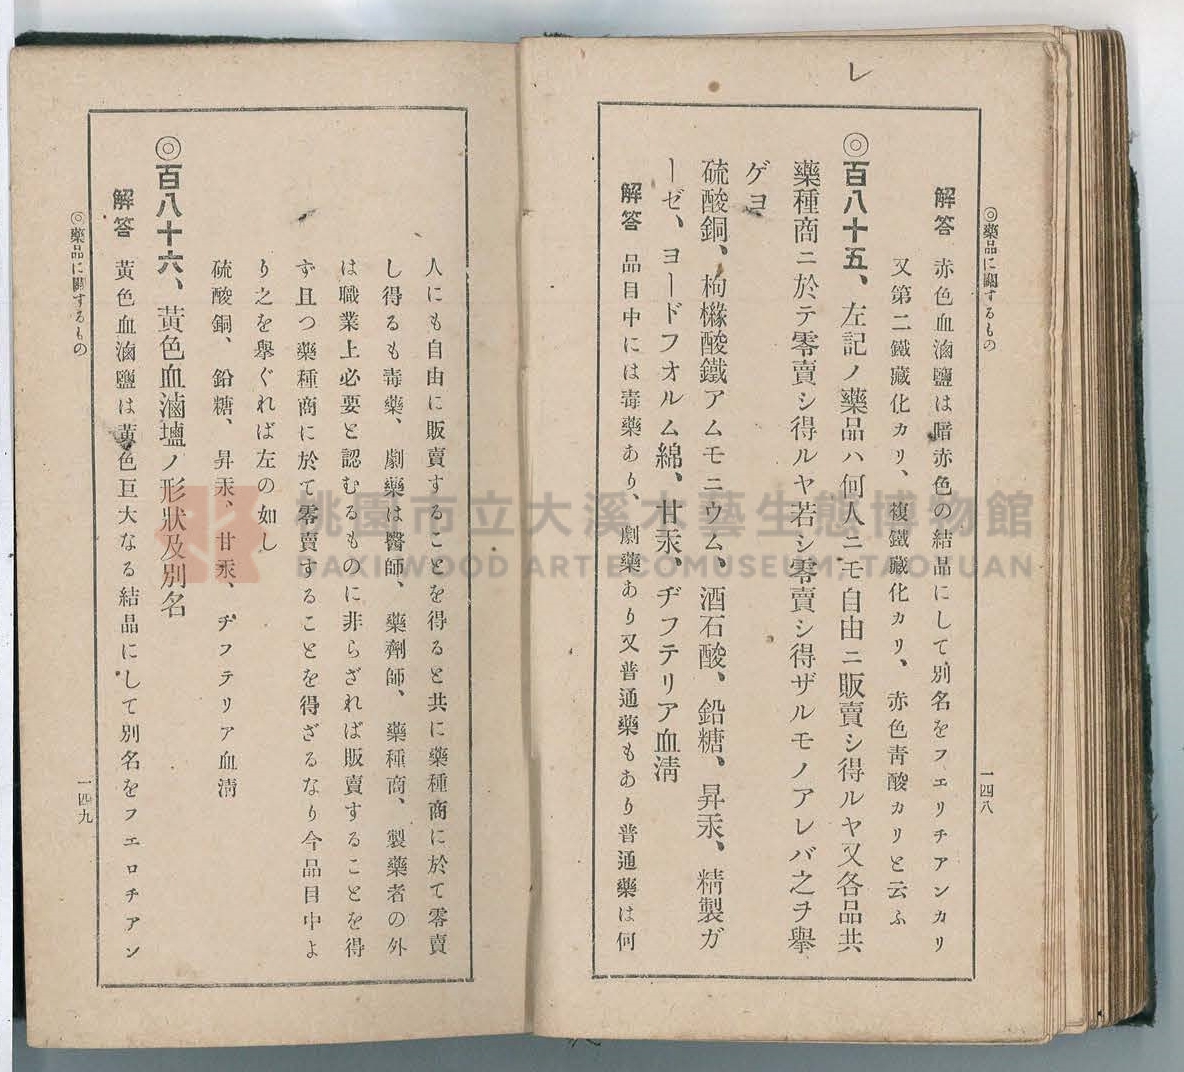 レ
◎藥品に關するもの
一四八
解答 赤色血滷鹽は暗赤色の結晶にして別名をフェリチアンカリ
又第二鐵藏化カリ、複鐵藏化カリ、赤色靑酸カリと云ふ
◎百八十五、左記ノ藥品ハ何人ニモ自由ニ販賣シ得ルヤ又各品共
藥種商ニ於テ零賣シ得ルヤ若シ零賣シ得ザルモノアレバ之ヲ擧
ゲヨ
硫酸銅、枸櫞酸鐵アムモニウム、酒石酸、鉛糖、昇汞、精製ガ
ーゼ、ヨードフオルム綿、甘汞、ヂフテリア血淸
解答 品目中には毒藥あり、劇藥あり又普通藥もあり普通藥は何
人にも自由に販賣することを得ると共に藥種商に於て零賣
し得るも毒藥、劇藥は醫師、藥劑師、藥種商、製藥者の外
は職業上必要と認むるものに非らざれば販賣することを得
ず且つ藥種商に於て零賣することを得ざるなり今品目中よ
り之を擧ぐれば左の如し
硫酸銅、鉛糖、昇汞、甘汞、ヂフテリア血淸
◎百八十六、黃色血滷塩ノ形狀及別名
解答 黃色血滷鹽は黃色巨大なる結晶にして別名をフエロチアン
◎藥品に關するもの
一四九
桃園市立大溪木藝生態博物館
DAXI WOOD ART ECOMUSEUM, TAOYUAN